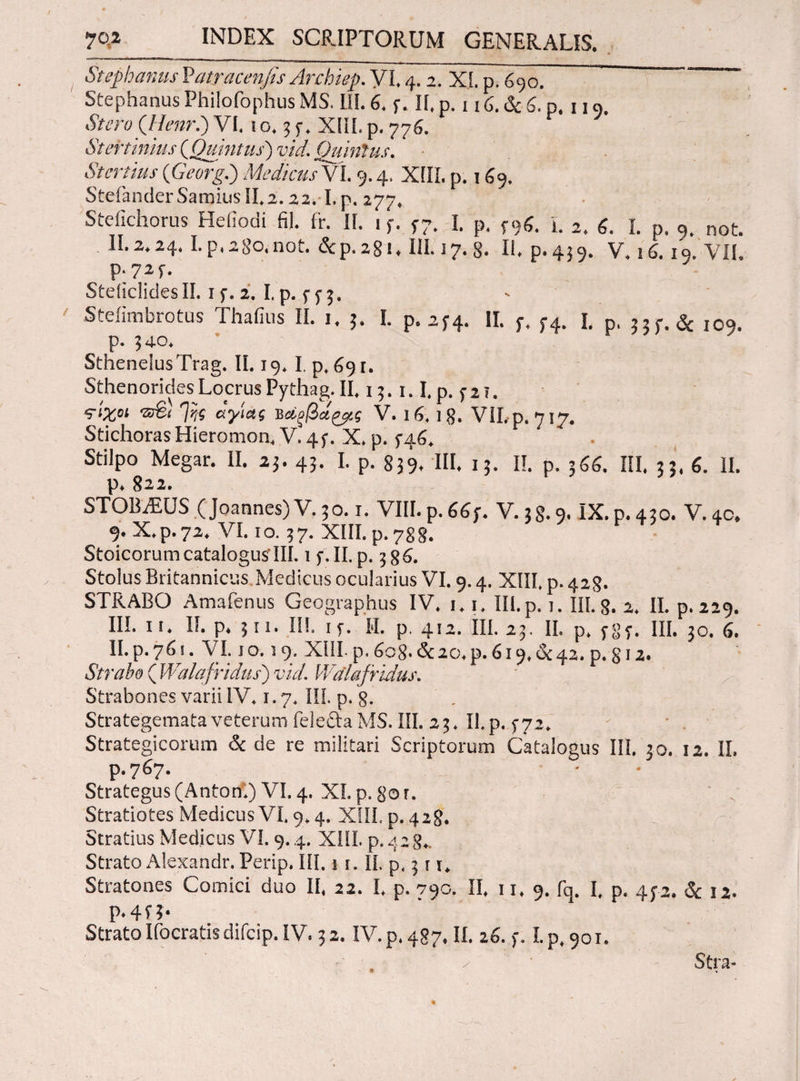 702 INDEX SCRIPTORUM GENERALIS.
Stephanus Patracenſis Archiep. VI. 4. 2. XI. p. 690.
Stephanus Philoſophus MS. III. 6. 5. II. p. 116. & 6. p. 119.
Stero (Henr.) VI. 10. 35. XIII. p. 776.
Stertinius (Quintus) vid. Quintus.
Stertius (Georg.) Medicus VI. 9. 4. XIII. p. 169.
Steſander Samius II. 2. 22. I. p. 277.
Steſichorus Heſiodi fil. fr. II. 15. 57. I. p. 596. i. 2. 6. I. p. 9. not.
II. 2. 24. I. p. 280. not. & p. 281. III. 17. 8. II. p. 439. V. 16. 19. VII.
p. 725.
Steſiclides II. 15. 2. I. p. 553.
Steſimbrotus Thaſius II. 1. 3. I. p. 254. II. 5. 54. I. p. 335. & 109.
p. 340.
Sthenelus Trag. II. 19. I. p. 691.
Sthenorides Locrus Pythag. II. 13. 1. I. p. 521.
ςίχοι περὶ τῆς ἁγίας Βαρβάρας V. 16. 18. VII. p. 717.
Stichoras Hieromon. V. 45. X. p. 546.
Stilpo Megar. II. 23. 43. I. p. 839. III. 13. II. p. 366. III. 33. 6. II.
p. 822.
STOBÆUS (Joannes) V. 30. 1. VIII. p. 665. V. 38. 9. IX. p. 430. V. 40.
9. X. p. 72. VI. 10. 37. XIII. p. 788.
Stoicorum catalogus III. 15. II. p. 386.
Stolus Britannicus Medicus ocularius VI. 9. 4. XIII. p. 428.
STRABO Amaſenus Geographus IV. 1. 1. III. p. 1. III. 8. 2. II. p. 229.
III. 11. II. p. 311. III. 15. II. p. 412. III. 23. II. p. 585. III. 30. 6.
II. p. 761. VI. 10. 19. XIII. p. 608. & 20. p. 619. & 42. p. 812.
Strabo (Walafridus) vid. Walafridus.
Strabones varii IV. 1. 7. III. p. 8.
Strategemata veterum ſelecta MS. III. 23. II. p. 572.
Strategicorum & de re militari Scriptorum Catalogus III. 30. 12. II.
p. 767.
Strategus (Anton.) VI. 4. XI. p. 801.
Stratiotes Medicus VI. 9. 4. XIII. p. 428.
Stratius Medicus VI. 9. 4. XIII. p. 428.
Strato Alexandr. Perip. III. 11. II. p. 311.
Stratones Comici duo II. 22. I. p. 790. II. 11. 9. ſq. I. p. 452. & 12.
p. 453.
Strato Iſocratis diſcip. IV. 32. IV. p. 487. II. 26. 5. I. p. 901.
Stra-